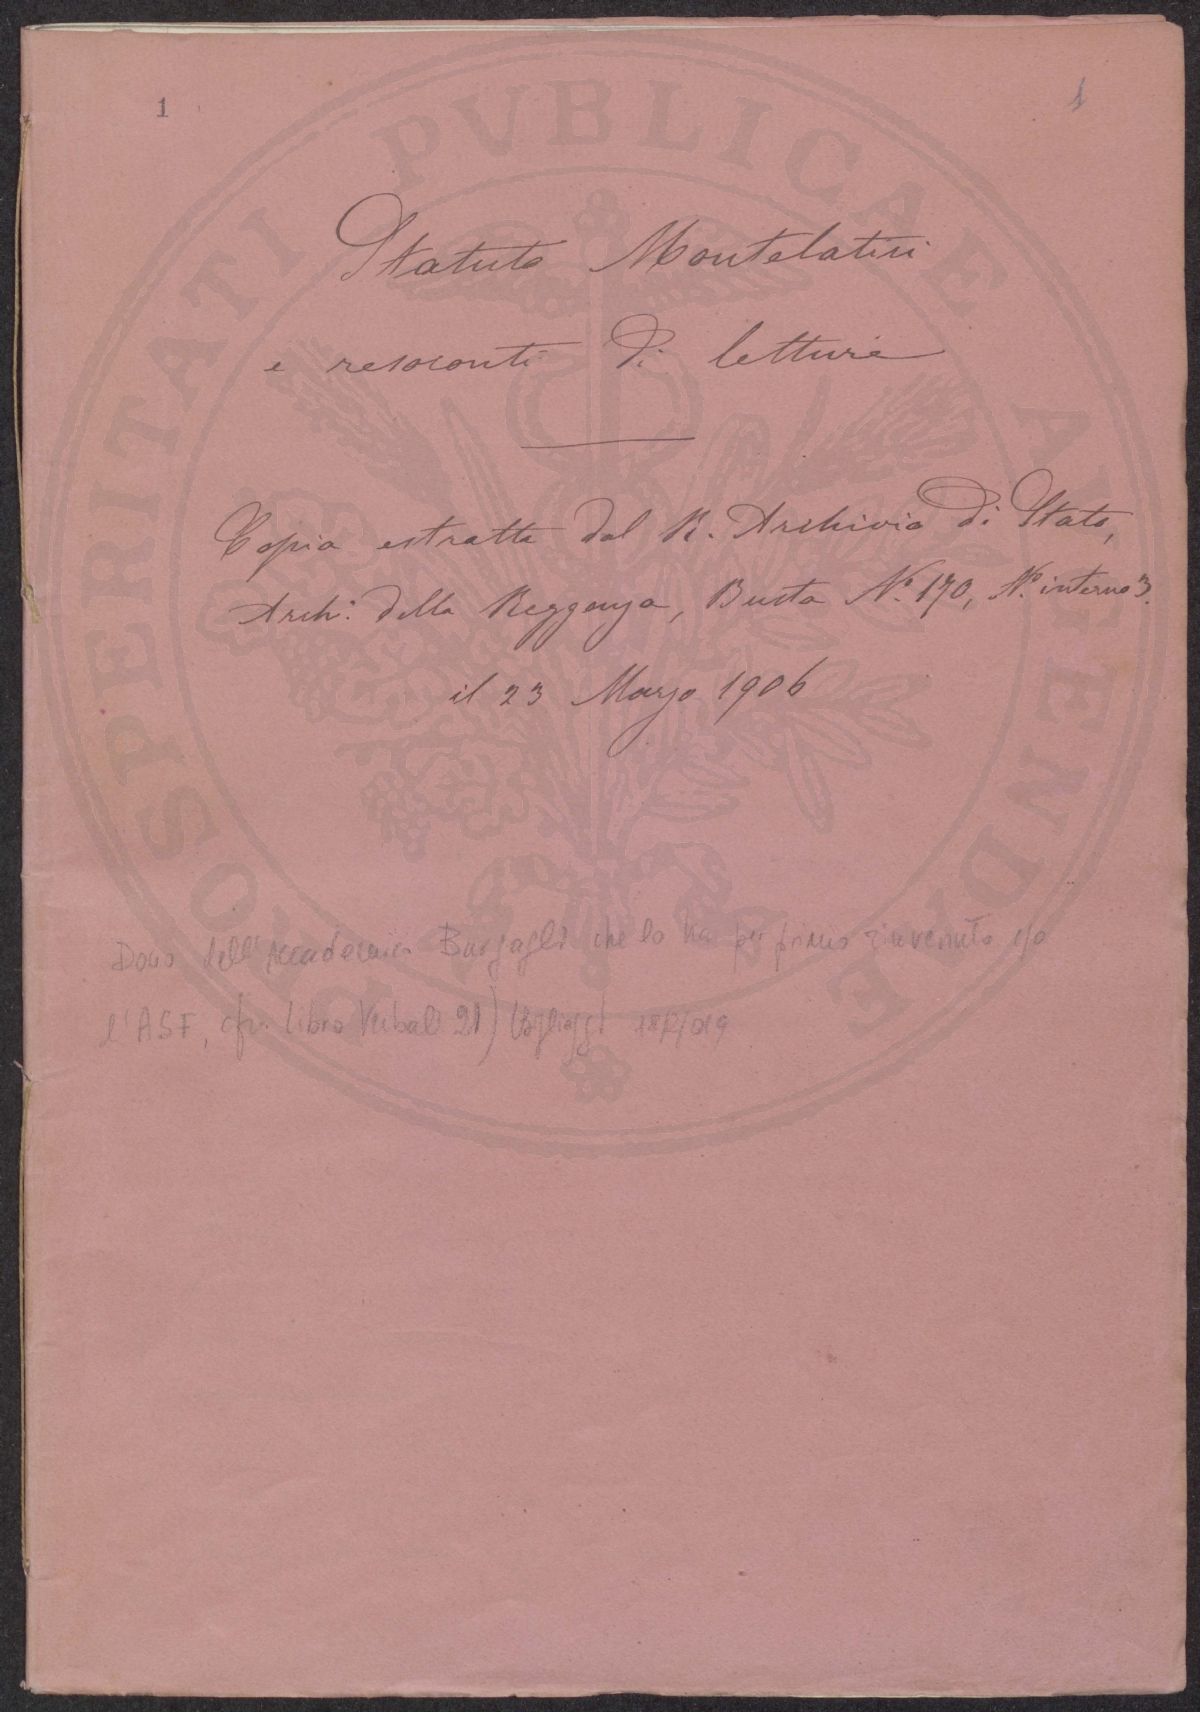 1 1
PROSPERITATI PVBLICAE AVGENDAE
Statuto Montelatici
e resoconti di letture
Copia estratta dal R. Archivio di Stato,
Arch: della Reggenza, Busta Nº. 170, Nº. interno 3.
il 23 Marzo 1906
Dono dell'Accademico Bargagli che lo ha per primo rinvenuto c/o
l'ASF, cfr. Libro Verbali 21)